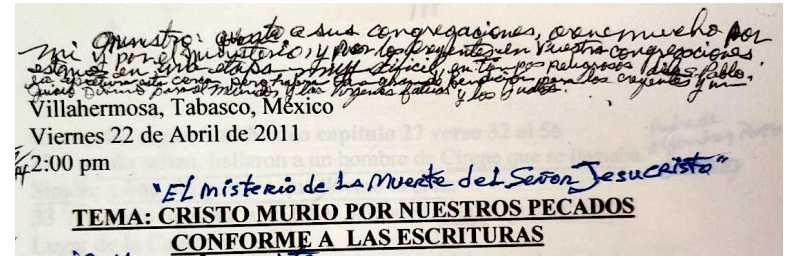 Ministro: a sus congregaciones, oren mucho por
mi y por el ministerio, y por los creyentes en vuestra congregaciones
estamos en una etapa muy dificil, en tiempos peligrosos dice S. Pablo,
bendición para los creyentes y un
juicio Divino para el mundo, y las vírgenes fatuas y los Judíos.
Villahermosa, Tabasco, México
Viernes 22 de Abril de 2011
2:00 pm
"El Misterio de La Muerte del Señor Jesucristo"
TEMA: CRISTO MURIO POR NUESTROS PECADOS
CONFORME A LAS ESCRITURAS